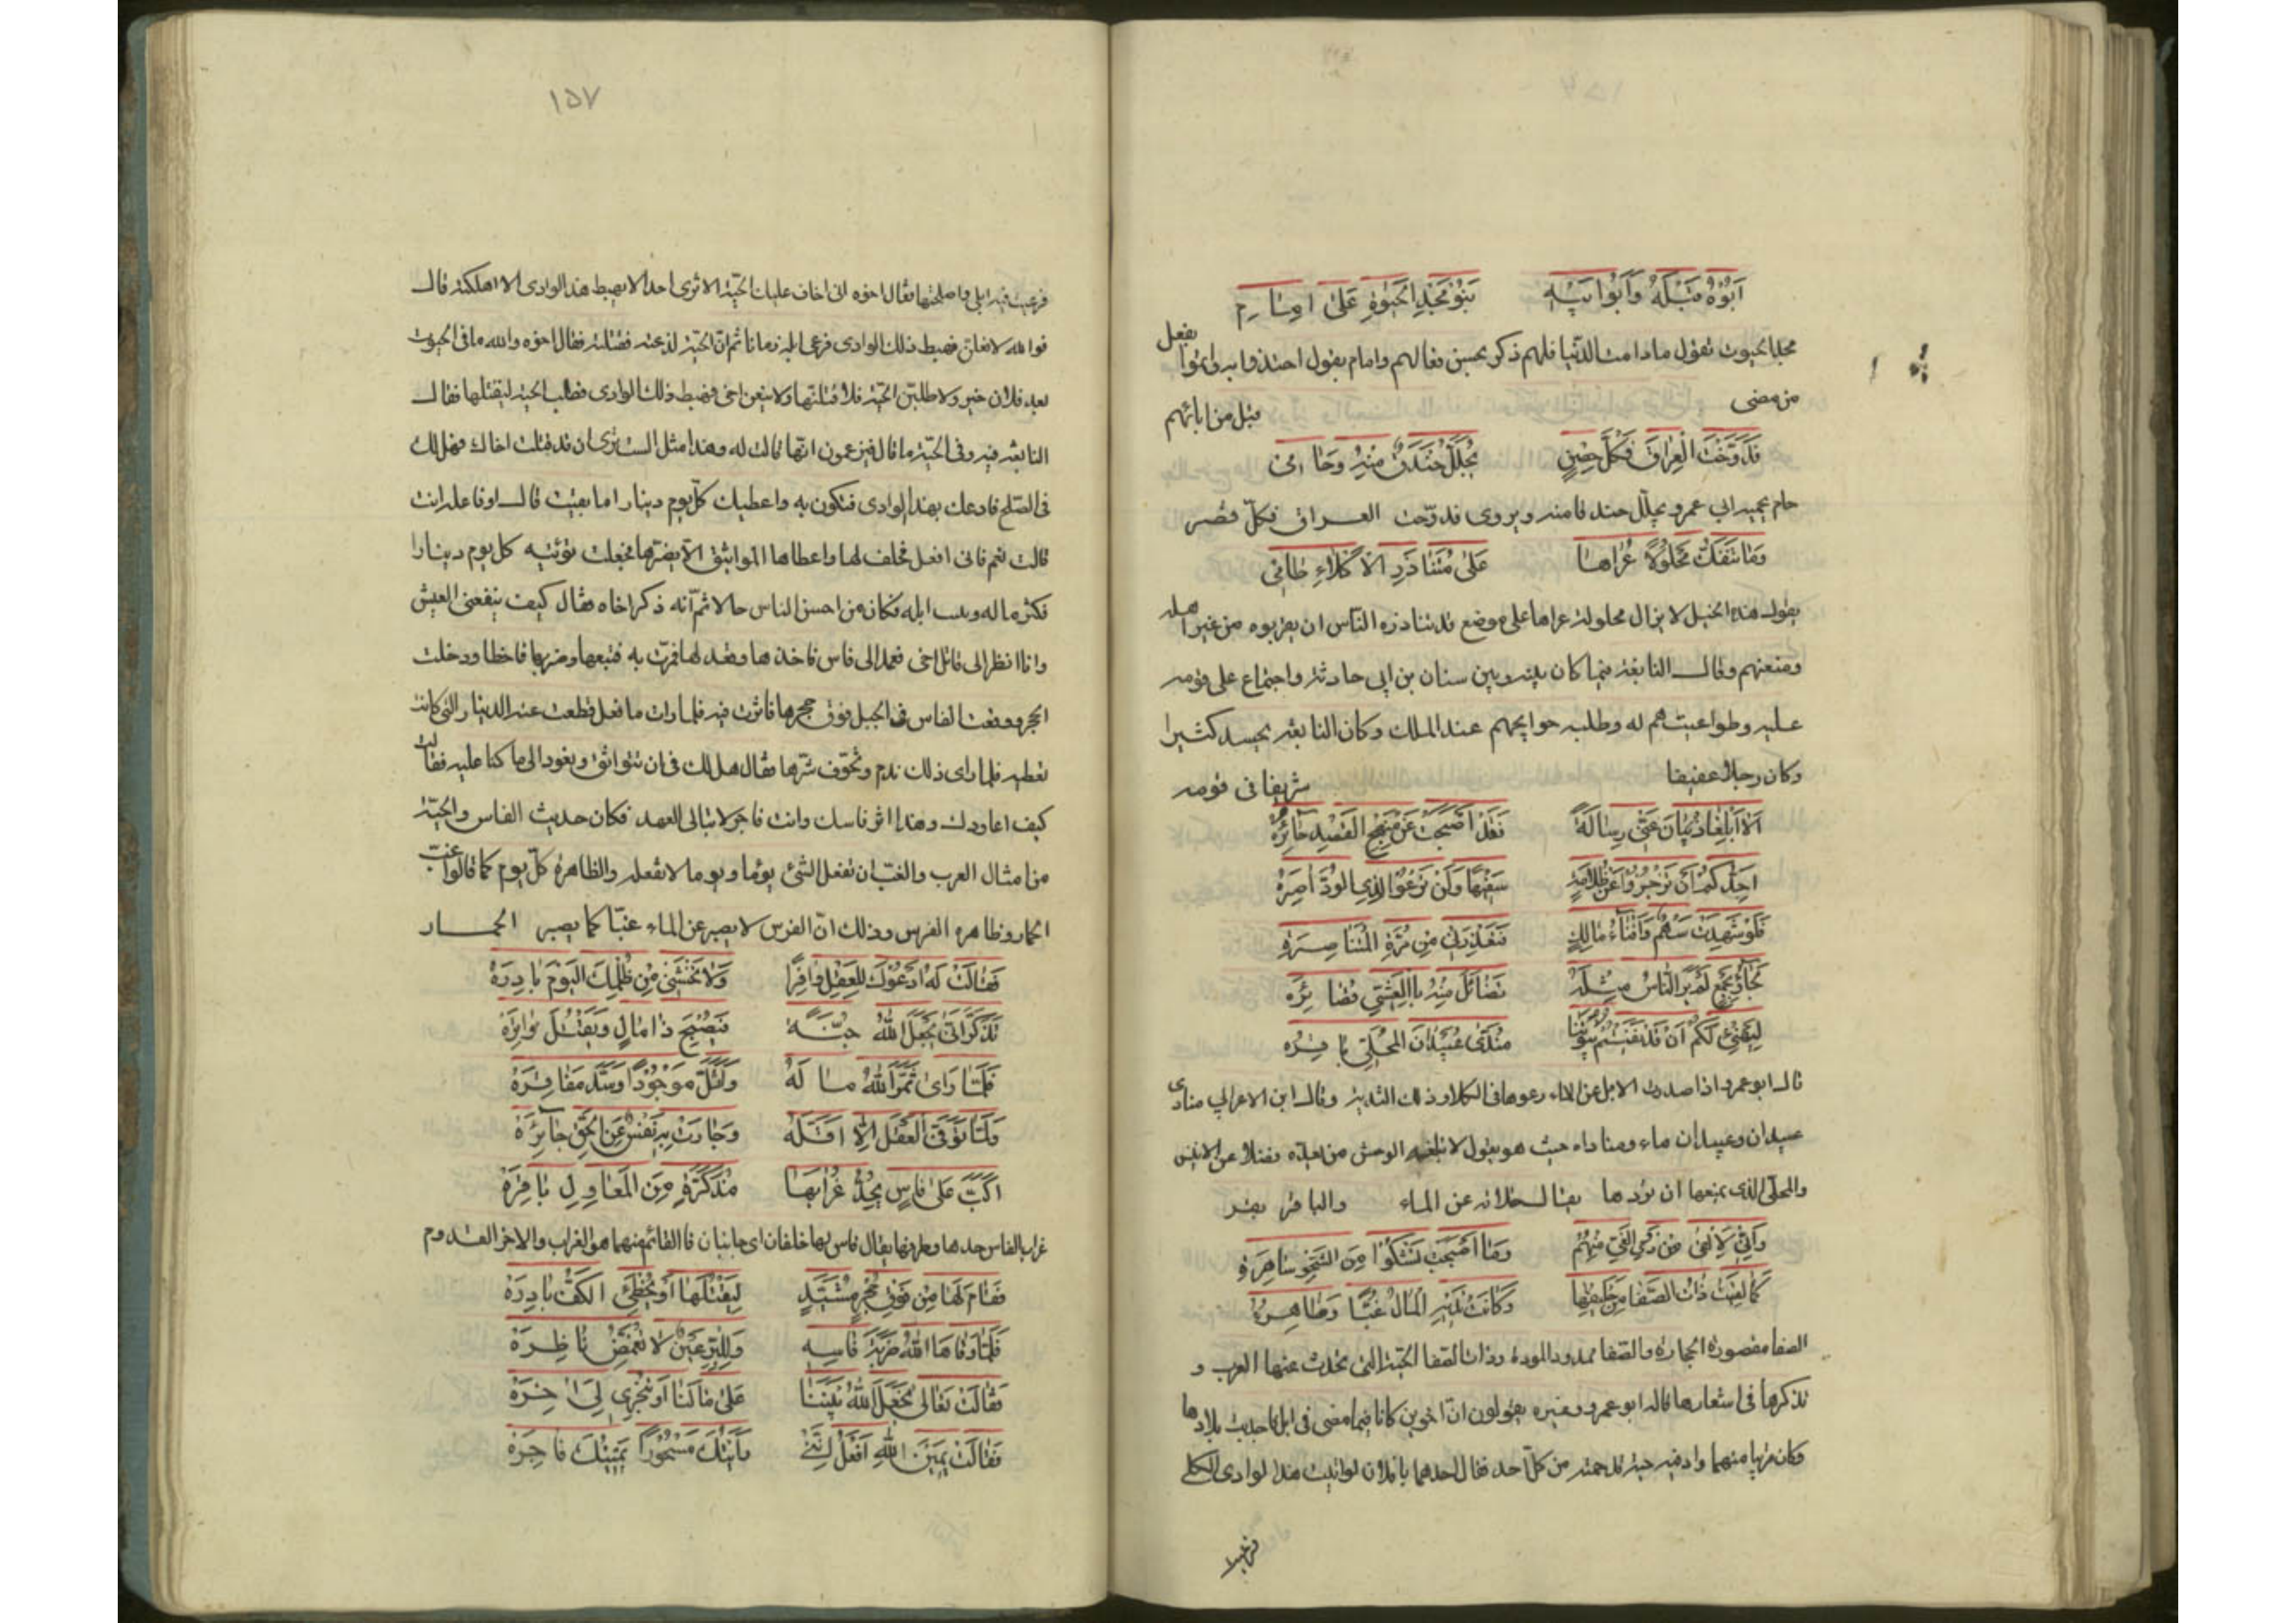 اَبُوْهُ قَبْلَهُ وَاَبُوْا بَيْهِ بَنَوْا مَجْدَ الحَيٰوةِ عَلىٰ اِمَامِ
يفعل
مجد الحيوت يقول ما دامت الدنيا فلهم ذكر بحسن فعالهم وامام يقول احتذوا به وابنوا
من مضى قبل من ابائهم
قَدَوَّخْتَ الْعِرَاقَ فَكُلُّ حِصْنٍ يُجَلِّلُ خَنْدَقٌ مِنْهُ وَحَامِى
حام يحميه ابي عمرو يجلّل خندقا منه ويروى فدوّخت العراق فكلّ قصر
وَمَا تَنْفَكُّ مَحْلُوْلًا عُرَاهَا عَلىٰ مُتَنَاذَرِ الْاَكْلَاءِ طَامِى
يقول هذه الخيل لا يزال محلولة عراها على موضع قد تناذره الناس ان يقربوه من غير اهله
ومنعتهم وقال النابغة فيما كان بينه وبين سنان بن ابي حارثة واجتماع على قومه
عليه وطواعيتهم له وطلبه حوايجهم عند الملك وكان النابغة يحسد كثيرا
وكان رجلا عفيفا شريفا في قومه
اَلَا اَبْلِغَا ذُبْيَانَ عَنِّى رِسَالَةً فَقَدْ اَصْبَحَتْ عَنْ مَنْهَجِ القَصْدِ جَائِرَهْ
اَجِدَّكُمُ اَنْ تَزْجُرُوْا عَنْ ظُلَامَةٍ سَفِيْهًا وَلَنْ تَرْعَوْا لِذِى الوُدِّ اٰصِرَهْ
فَلَوْ شَهِدَتْ سَهْمٌ وَاَفْنَاءُ مَالِكٍ فَتُعْذِرَنِى مِنْ مُرَّةَ الْمُتَنَاصِرَهْ
لَجَاؤُا بِجَمْعٍ لَمْ يَرَ النَّاسُ مِثْلَهُ تَضَائَلَ مِنْهُ بِالعَشِىِّ قَصَائِرَهْ
لِيَهْنِئْ لَكُمْ اَنْ قَدْ نَفَيْتُمْ بُيُوْتَنَا مُنَدَّى عُبَيْدَانَ المُحَلِّئِ بَاقِرَهْ
قال ابو عمرو اذا صدرت الابل عن الماء رعوها في الكلاء وذلك التندية وقال ابن الاعرابي منادى
عبيدان وعبيدان ماء ومناداه حيث هو يقول لا تبلغه الوحش من بعده فضلا عن الانيس
والمحلئ الذى يمنعها ان تردها يقال حلاته عن الماء والباقر بقر
وَاِنِّى لَاَلْقىٰ مِنْ ذَوِى الغَىِّ مِنْهُمُ وَمَا اَصْبَحَتْ تَشْكُوْا مِنَ الشَّجْوِ سَاهِرَهْ
كَمَا لَقِيَتْ ذَاتُ الصَّفَا مِنْ حَلِيْفِهَا وَكَانَتْ تَدِيْهِ الْمَالَ غِبًّا وَظَاهِرَهْ
الصفا مقصورة الحجارة والصفا ممدود المودة وذات الصفا الحيّة التى تحدث عنها العرب و
تذكرها في اشعارها قال ابو عمرو وغيره يقولون انّ اخوين كانا فيما مضى في ابل فاجدبت بلادها
وكان قريبا منهما واد فيه حية قد حمته من كلّ احد فقال احدهما يا فلان لو اتيت هذا الوادى الكلى
فرعيت
١٥٧
فرعيت فيه ابلي واصلحتها فقال اخوه انى اخاف عليك الحيّة الا ترى احدا لا يهبط هذا الوادى الا اهلكته قال
فوالله لافعلن فهبط ذلك الوادى فرعى ابله زمانا ثم انّ الحيّة لدغته فقتلته فقال اخوه والله ما في الحيوت
بعد فلان خير ولاطلبنّ الحيّة فلاقتلنّها ولاتبعن اخى فهبط ذلك الوادى فطلب الحية ليقتلها فقال
النابغة فيه وفي الحيّة ما قال فيزعمون انّها قالت له وهذا مثل الست ترى ان قد قتلت اخاك فهل لك
في الصّلح فادعك بهذا الوادى فتكون به واعطيك كلّ يوم دينارا ما بقيت قال اوفاعلة انت
قالت نعم قال فانى افعل فحلف لها واعطاها المواثيق الا يضرّها فجعلت تؤتيه كل يوم دينارا
فكثر ماله ونبت ابله فكان من احسن الناس حالا ثم انّه ذكر اخاه فقال كيف ينفعنى العيش
وانا انظر الى قاتل اخى فعمد الى فاس فاخذها وقعد لها فمرّت به فتبعها وضربها فاخطا ودخلت
الحجر ووقعت الفاس في الجبل فوق حجرها فاثرت فيه فلما رات ما فعل قطعت عنه الدينار التى كانت
تعطيه فلما راى ذلك ندم وتخوّف شرّها فقال هل لك في ان نتواثق ونعود الى ما كنا عليه فقالت
كيف اعاودك وهذا اثر فاسك وانت فاجر لا تبالى العهد فكان حديث الفاس والحيّة
من امثال العرب والغبّ ان تفعل الشئ يوما ويوما لا تفعله والظاهرة كلّ يوم كما قالوا غبّ
الحمار وظاهرة الفرس وذلك انّ الفرس لا يصبر عن الماء غبّا كما يصبر الحمار
فَقَالَتْ لَهُ اَدْعُوْكَ لِلعَقْلِ وَافِرًا وَلَا تَخْشَيَنِّى مِنْ ظُلْمِكَ اليَوْمَ بَادِرَهْ
تَذَكَّرَ اَنّٰى يَجْعَلُ اللهُ جُنَّةً فَيُصْبِحَ ذَا مَالٍ وَيَقْتُلَ وَاتِرَهْ
فَلَمَّا رَاىٰ ثَمَّرَ اللهُ مَالَهُ وَاَثَّلَ مَوْجُوْدًا وَسَدَّ مَفَاقِرَهْ
فَلَمَّا تَوَفَّى العَقْلَ اِلَّا اَقَلَّهُ وَجَارَتْ بِهِ نَفْسٌ عَنِ الحَقِّ جَائِرَهْ
اَكَبَّ عَلىٰ فَاسٍ يُحِدُّ غُرَابَهَا مُذَكَّرَةٍ مِنَ الْمَعَاوِلِ بَاتِرَهْ
غراب الفاس حدها وطرفها يقال فاس لها خلفان اى جانبان فالقائم منهما هو الغراب والاخر القدوم
فَقَامَ لَهَا مِنْ فَوْقِ جُحْرٍ مُشَيَّدٍ لِيَقْتُلَهَا اَوْ تُخْطِئَ الكَفُّ بَادِرَهْ
فَلَمَّا وَقَاهَا اللهُ ضَرْبَةَ فَاسِهِ وَلِلْبِرِّ عَيْنٌ لَا تُغَمِّضُ نَاظِرَهْ
فَقَالَتْ تَعَالَىٰ نَجْعَلِ اللهَ بَيْنَنَا عَلىٰ مَا لَنَا اَوْ تُنْجِزِى لِىَ اٰخِرَهْ
فَقَالَتْ يَمِيْنَ اللهِ اَفْعَلُ اِنَّنِى رَاَيْتُكَ مَسْحُوْرًا يَمِيْنُكَ فَاجِرَهْ